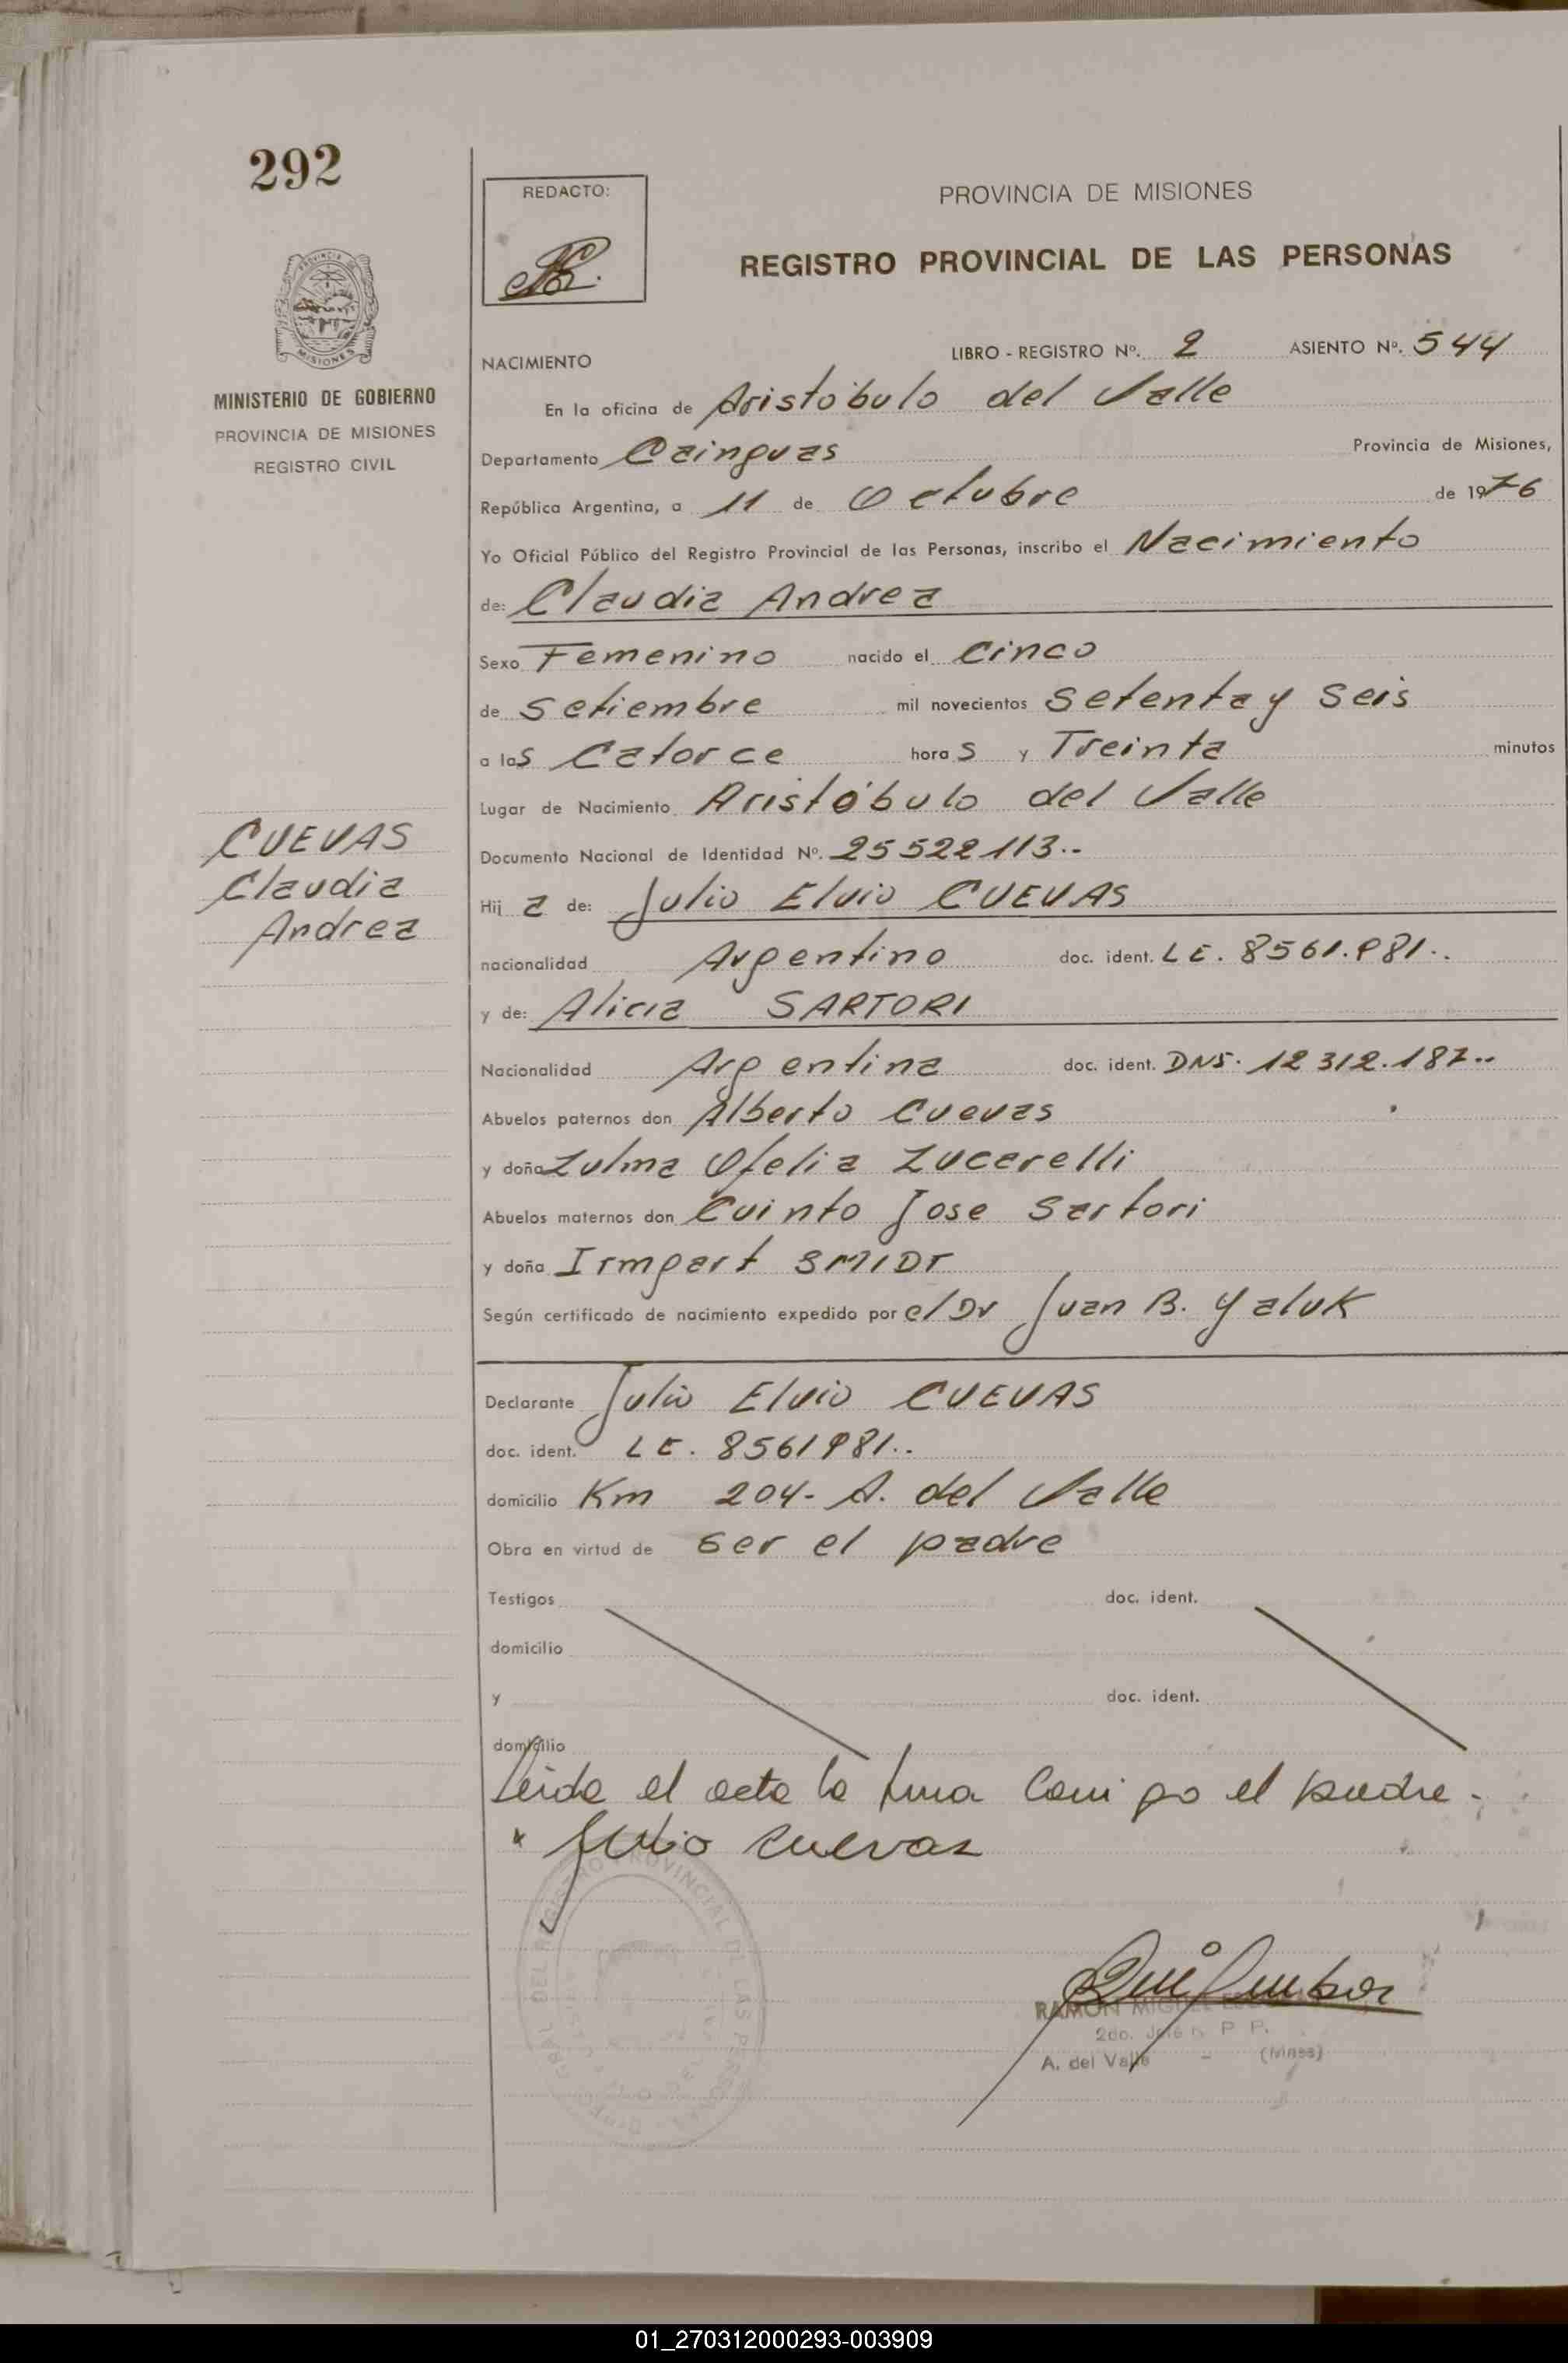 292
REDACTO:
PROVINCIA DE MISIONES
REGISTRO PROVINCIAL DE LAS PERSONAS
PROVINCIA DE
MISIONES
MINISTERIO DE GOBIERNO
PROVINCIA DE MISIONES
REGISTRO CIVIL
NACIMIENTO LIBRO - REGISTRO Nº. 2 ASIENTO Nº. 544
En la oficina de Aristóbulo del Valle
Departamento Cainguas Provincia de Misiones,
República Argentina, a 11 de Octubre de 1976
Yo Oficial Público del Registro Provincial de las Personas, inscribo el Nacimiento
de: Claudia Andrea
Sexo Femenino nacido el cinco
de setiembre mil novecientos setenta y seis
a las Catorce horas y Treinta minutos
Lugar de Nacimiento Aristóbulo del Valle
CUEVAS
Claudia
Andrea
Documento Nacional de Identidad Nº. 25522113..
Hij a de: Julio Elvio CUEVAS
nacionalidad Argentino doc. ident. LE. 8561.981..
y de: Alicia SARTORI
Nacionalidad Argentina doc. ident. DNI. 12312.187..
Abuelos paternos don Alberto Cuevas
y doña Zulma Ofelia Zucarelli
Abuelos maternos don Cuinto Jose Sartori
y doña Irmgart SMIDT
Según certificado de nacimiento expedido por el Dr Juan B. Yaluk
Declarante Julio Elvio CUEVAS
doc. ident. LE. 8561981..
domicilio Km 204- A. del Valle
Obra en virtud de ser el padre
Testigos doc. ident.
domicilio
y doc. ident.
domicilio
Leida el acta la firma conmigo el padre.
Julio Cuevas
REGISTRO PROVINCIAL DE LAS PERSONAS
RAMON MIGUEL
2do. Jefe R. P. P.
A. del Valle - (Mnes)
01_270312000293-003909